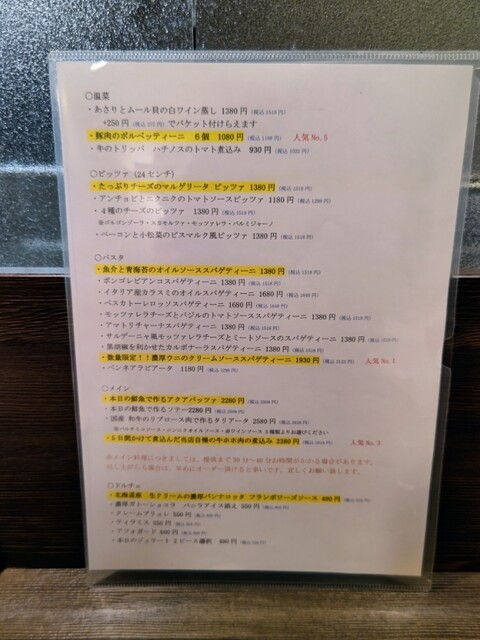 〇温菜
・あさりとムール貝の白ワイン蒸し 1380円(税込1518円)
+250円(税込275円)でバケット付けらえます
・豚肉のポルペッティーニ 6個 1080円(税込1188円) 人気No.5
・牛のトリッパ ハチノスのトマト煮込み 930円(税込1023円)
〇ピッツァ(24センチ)
・たっぷりチーズのマルゲリータ ピッツァ 1380円(税込1518円)
・アンチョビとニンニクのトマトソースピッツァ 1180円(税込1298円)
・4種のチーズのピッツァ 1380円(税込1518円)
※ゴルゴンゾーラ・スカモルツァ・モッツァレラ・パルミジャーノ
・ベーコンと小松菜のビスマルク風ピッツァ 1380円(税込1518円)
〇パスタ
・魚介と青海苔のオイルソーススパゲティーニ 1380円(税込1518円)
・ボンゴレビアンコスパゲティーニ 1380円(税込1518円)
・イタリア産カラスミのオイルスパゲティーニ 1680円(税込1848円)
・ペスカトーレロッソスパゲティーニ 1680円(税込1848円)
・モッツァレラチーズとバジルのトマトソーススパゲティーニ 1380円(税込1518円)
・アマトリチャーナスパゲティーニ 1380円(税込1518円)
・サルデーニャ風モッツァレラチーズとミートソースのスパゲティーニ 1380円(税込1518円)
・黒胡椒を利かせたカルボナーラスパゲティーニ 1380円(税込1518円)
・数量限定!!濃厚ウニのクリームソーススパゲティーニ 1930円(税込2123円) 人気No.1
・ペンネアラビアータ 1180円(税込1298円)
〇メイン
・本日の鮮魚で作るアクアパッツァ 2280円(税込2508円)
・本日の鮮魚で作るソテー2280円(税込2508円)
・国産 和牛のリブロース肉で作るタリアータ 2580円(税込2838円)
※バルサミコソース・ニンニクオイルソース・赤ワインソース 3種類よりお選びください
・5日間かけて煮込んだ当店自慢の牛ホホ肉の煮込み 2380円(税込2618円) 人気No.3
※メイン料理につきましては、提供まで30分～40分お時間がかかる場合があります。
〇ドルチェ
・北海道産 生クリームの濃厚パンナコッタ フランボワーズソース 480円(税込528円)
・濃厚ガトーショコラ バニラアイス添え 550円(税込605円)
・クレームブリュレ 550円(税込605円)
・ティラミス 550円(税込605円)
・アフォガード 600円(税込660円)
・本日のジェラート2ピース盛り 480円(税込528円)